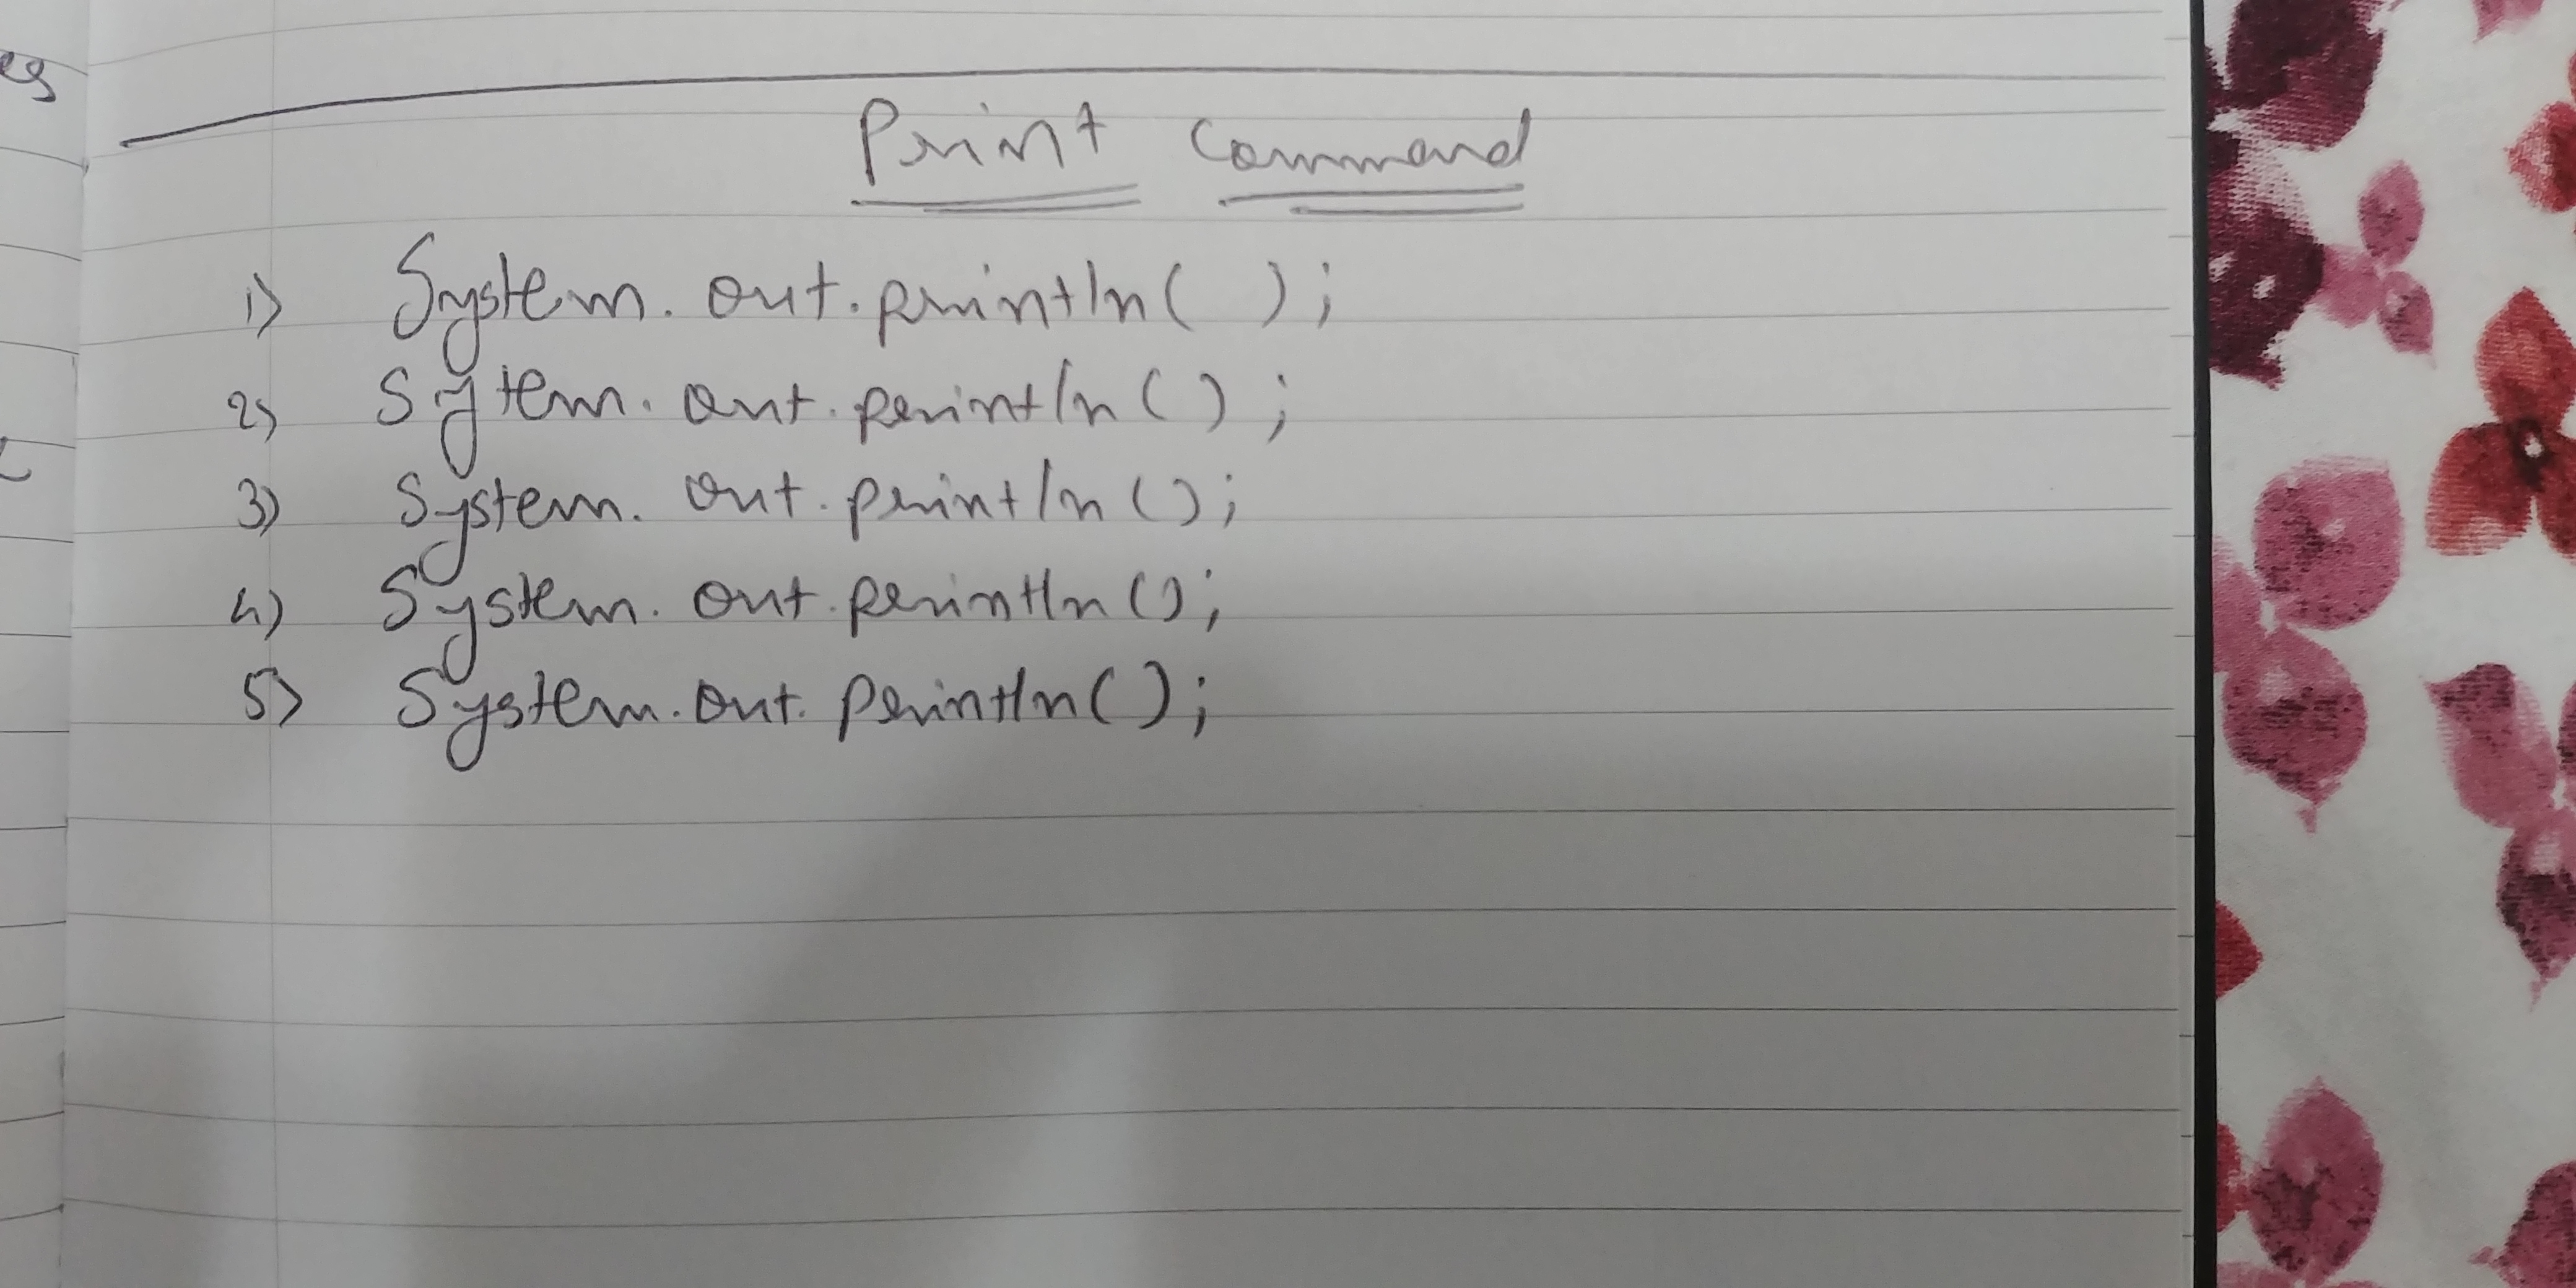 Print Command
1) System.out.println( );
2) System.out.println( );
3) System.out.println( );
4) System.out.println();
5) System.out.println( );